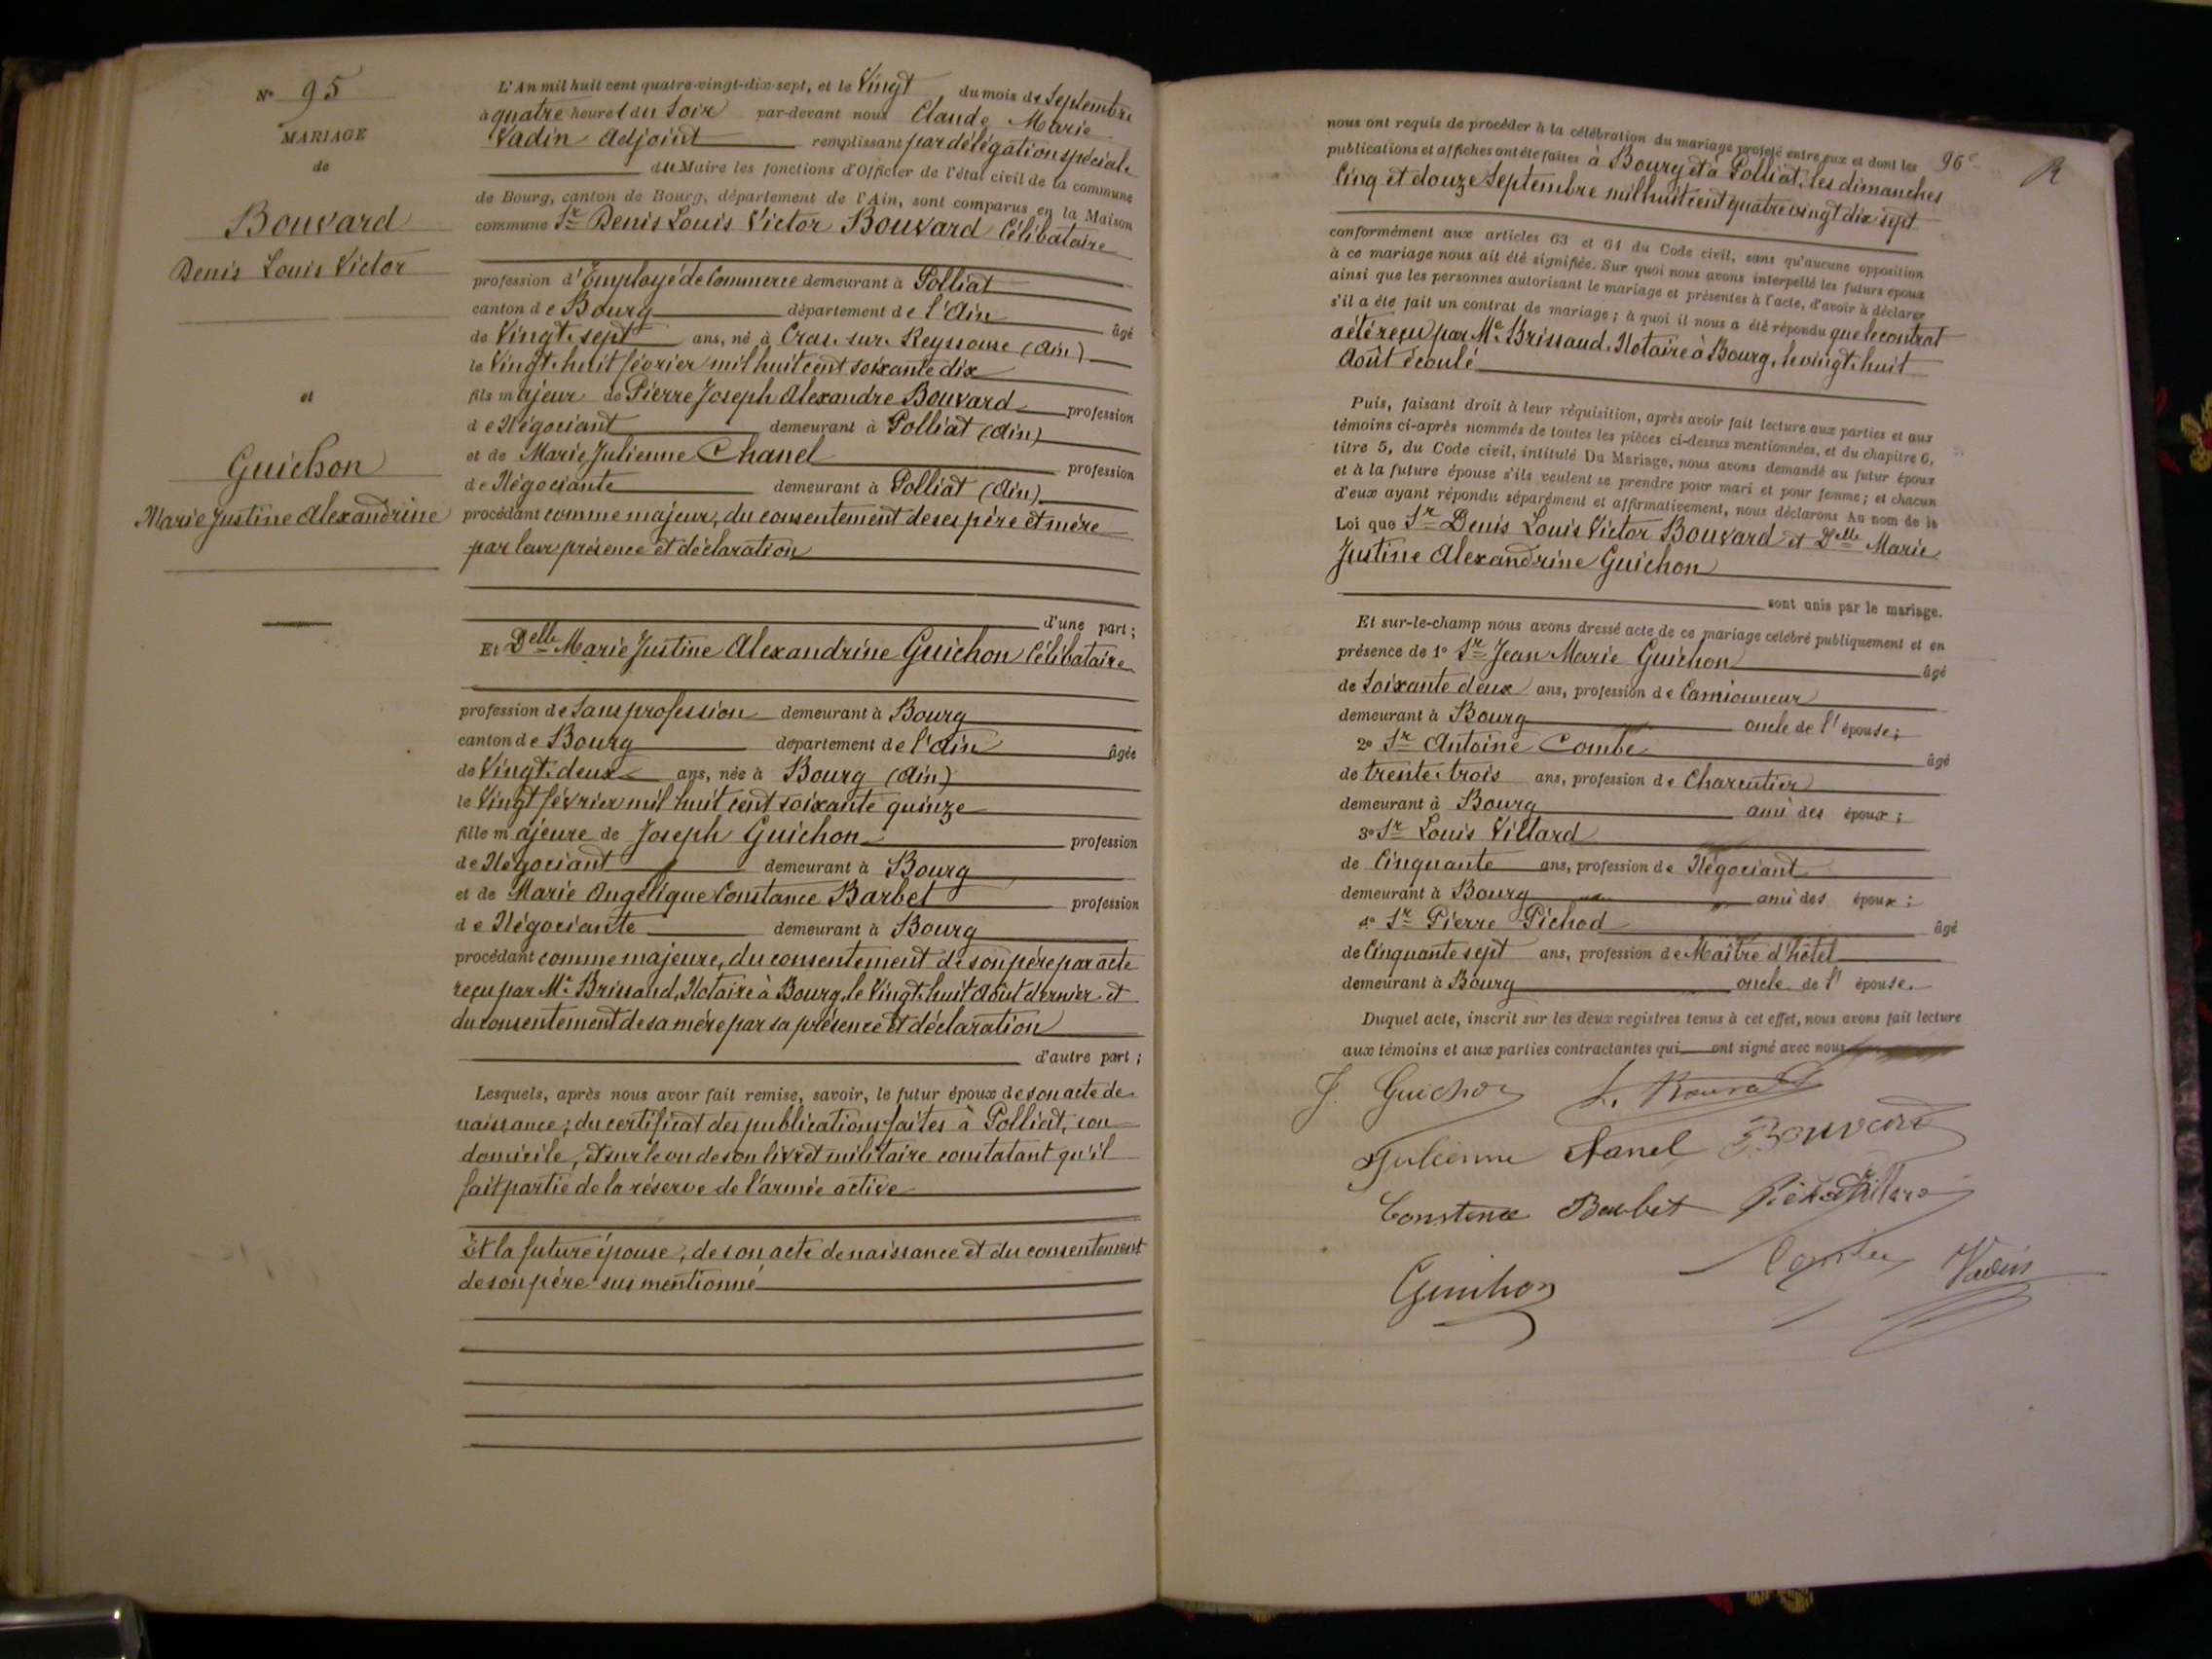 N° 95
MARIAGE
de
Bouvard
Denis Louis Victor
et
Guichon
Marie Justine Alexandrine
L'An mil huit cent quatre-vingt-dix-sept, et le Vingt du mois de Septembre
à quatre heures du Soir par-devant nous Claude Marie
Vadin Adjoint remplissant par délégation spéciale
du Maire les fonctions d'Officier de l'état civil de la commune
de Bourg, canton de Bourg, département de l'Ain, sont comparus en la Maison
commune Sr Denis Louis Victor Bouvard Célibataire
profession d'Employé de Commerce demeurant à Polliat
canton de Bourg département de l'Ain âgé
de Vingt-sept ans, né à Cras-sur-Reyssouze (Ain)
le Vingt-huit février mil huit cent soixante dix
fils majeur de Pierre Joseph Alexandre Bouvard profession
de Négociant demeurant à Polliat (Ain)
et de Marie Julienne Chanel profession
de Négociante demeurant à Polliat (Ain)
procédant comme majeur, du consentement de ses père et mère
par leur présence et déclaration
d'une part;
Et Delle Marie Justine Alexandrine Guichon Célibataire
profession de Sans profession demeurant à Bourg
canton de Bourg département de l'Ain âgée
de Vingt-deux ans, née à Bourg (Ain)
le Vingt février mil huit cent soixante quinze
fille majeure de Joseph Guichon profession
de Négociant demeurant à Bourg
et de Marie Angélique Constance Barbet profession
de Négociante demeurant à Bourg
procédant comme majeure, du consentement de son père par acte
reçu par Me Brissaud, Notaire à Bourg, le Vingt-huit Août dernier et
du consentement de sa mère par sa présence et déclaration
d'autre part;
Lesquels, après nous avoir fait remise, savoir, le futur époux de son acte de
naissance; du certificat des publications faites à Polliat, son
domicile, et sur le vu de son livret militaire constatant qu'il
fait partie de la réserve de l'armée active
Et la future épouse, de son acte de naissance et du consentement
de son père sus mentionné
96e
R
nous ont requis de procéder à la célébration du mariage projeté entre eux et dont les
publications et affiches ont été faites à Bourg et à Polliat, les dimanches
Cinq et douze Septembre mil huit cent quatre vingt dix sept
conformément aux articles 63 et 64 du Code civil, sans qu'aucune opposition
à ce mariage nous ait été signifiée. Sur quoi nous avons interpellé les futurs époux
ainsi que les personnes autorisant le mariage et présentes à l'acte, d'avoir à déclarer
s'il a été fait un contrat de mariage; à quoi il nous a été répondu que le contrat
a été reçu par Me Brissaud, Notaire à Bourg, le vingt-huit
Août écoulé
Puis, faisant droit à leur réquisition, après avoir fait lecture aux parties et aux
témoins ci-après nommés de toutes les pièces ci-dessus mentionnées, et du chapitre 6,
titre 5, du Code civil, intitulé Du Mariage, nous avons demandé au futur époux
et à la future épouse s'ils veulent se prendre pour mari et pour femme; et chacun
d'eux ayant répondu séparément et affirmativement, nous déclarons Au nom de la
Loi que Sr Denis Louis Victor Bouvard et Delle Marie
Justine Alexandrine Guichon
sont unis par le mariage.
Et sur-le-champ nous avons dressé acte de ce mariage célébré publiquement et en
présence de 1° Sr Jean Marie Guichon âgé
de Soixante deux ans, profession de Camionneur
demeurant à Bourg oncle de l'épouse;
2° Sr Antoine Combe âgé
de trente-trois ans, profession de Charcutier
demeurant à Bourg ami des époux;
3° Sr Louis Villard
de Cinquante ans, profession de Négociant
demeurant à Bourg ami des époux;
4° Sr Pierre Pichod âgé
de Cinquante sept ans, profession de Maître d'hôtel
demeurant à Bourg oncle de l'épouse.
Duquel acte, inscrit sur les deux registres tenus à cet effet, nous avons fait lecture
aux témoins et aux parties contractantes qui ont signé avec nous
J. Guichon L. Bouvard
Julienne Chanel Bouvard
Constance Barbet Pichod Villard
Guichon Combe Vadin